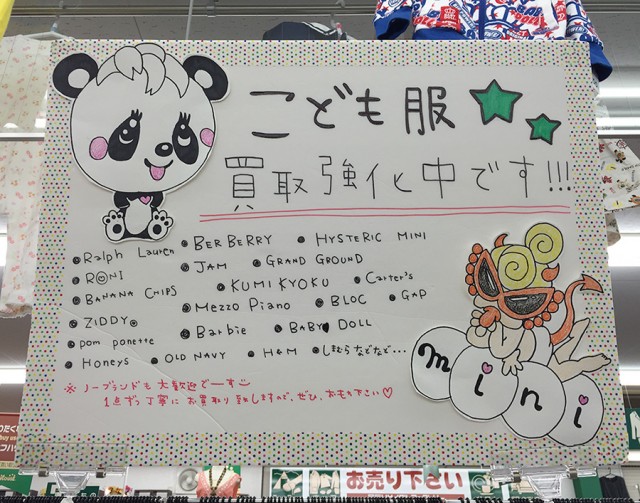 こども服
買取強化中です!!!
Ralph Lauren BERBERRY HYSTERIC MINI
RONI JAM GRAND GROUND
BANANA CHIPS KUMIKYOKU Carter's
ZIDDY Mezzo Piano BLOC GAP
pom ponette Barbie BABY DOLL
Honeys OLD NAVY H&M しむらなどなど...
※ノーブランドも大歓迎でーす
1点ずつ丁寧にお買取り致しますので、ぜひ、お売り下さい♡
mini
お売り下さい